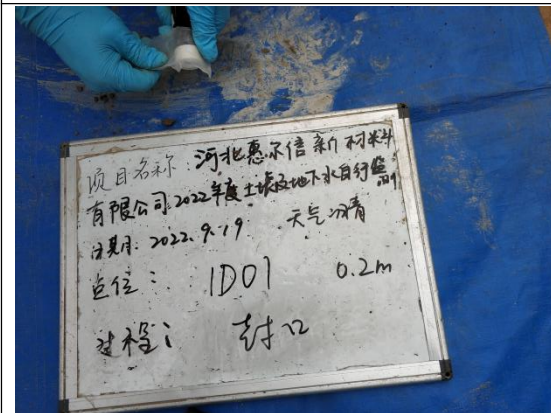 项目名称：河北惠尔信新材料
有限公司2022年度土壤及地下水自行监测
日期：2022.9.19 天气：晴
点位：1D01 0.2m
过程：封口